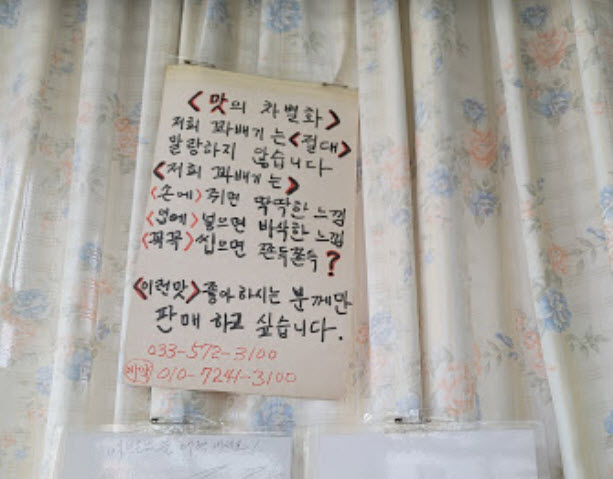 <맛의 차별화>
저희 꽈배기는 <절대>
말랑하지 않습니다
<저희 꽈배기는>
<손에> 쥐면 딱딱한 느낌
<입에> 넣으면 바삭한 느낌
<꼭꼭> 씹으면 쫀득쫀득?
<이런맛> 좋아하시는 분께만
판매 하고 싶습니다.
033-572-3100
예약 010-7241-3100